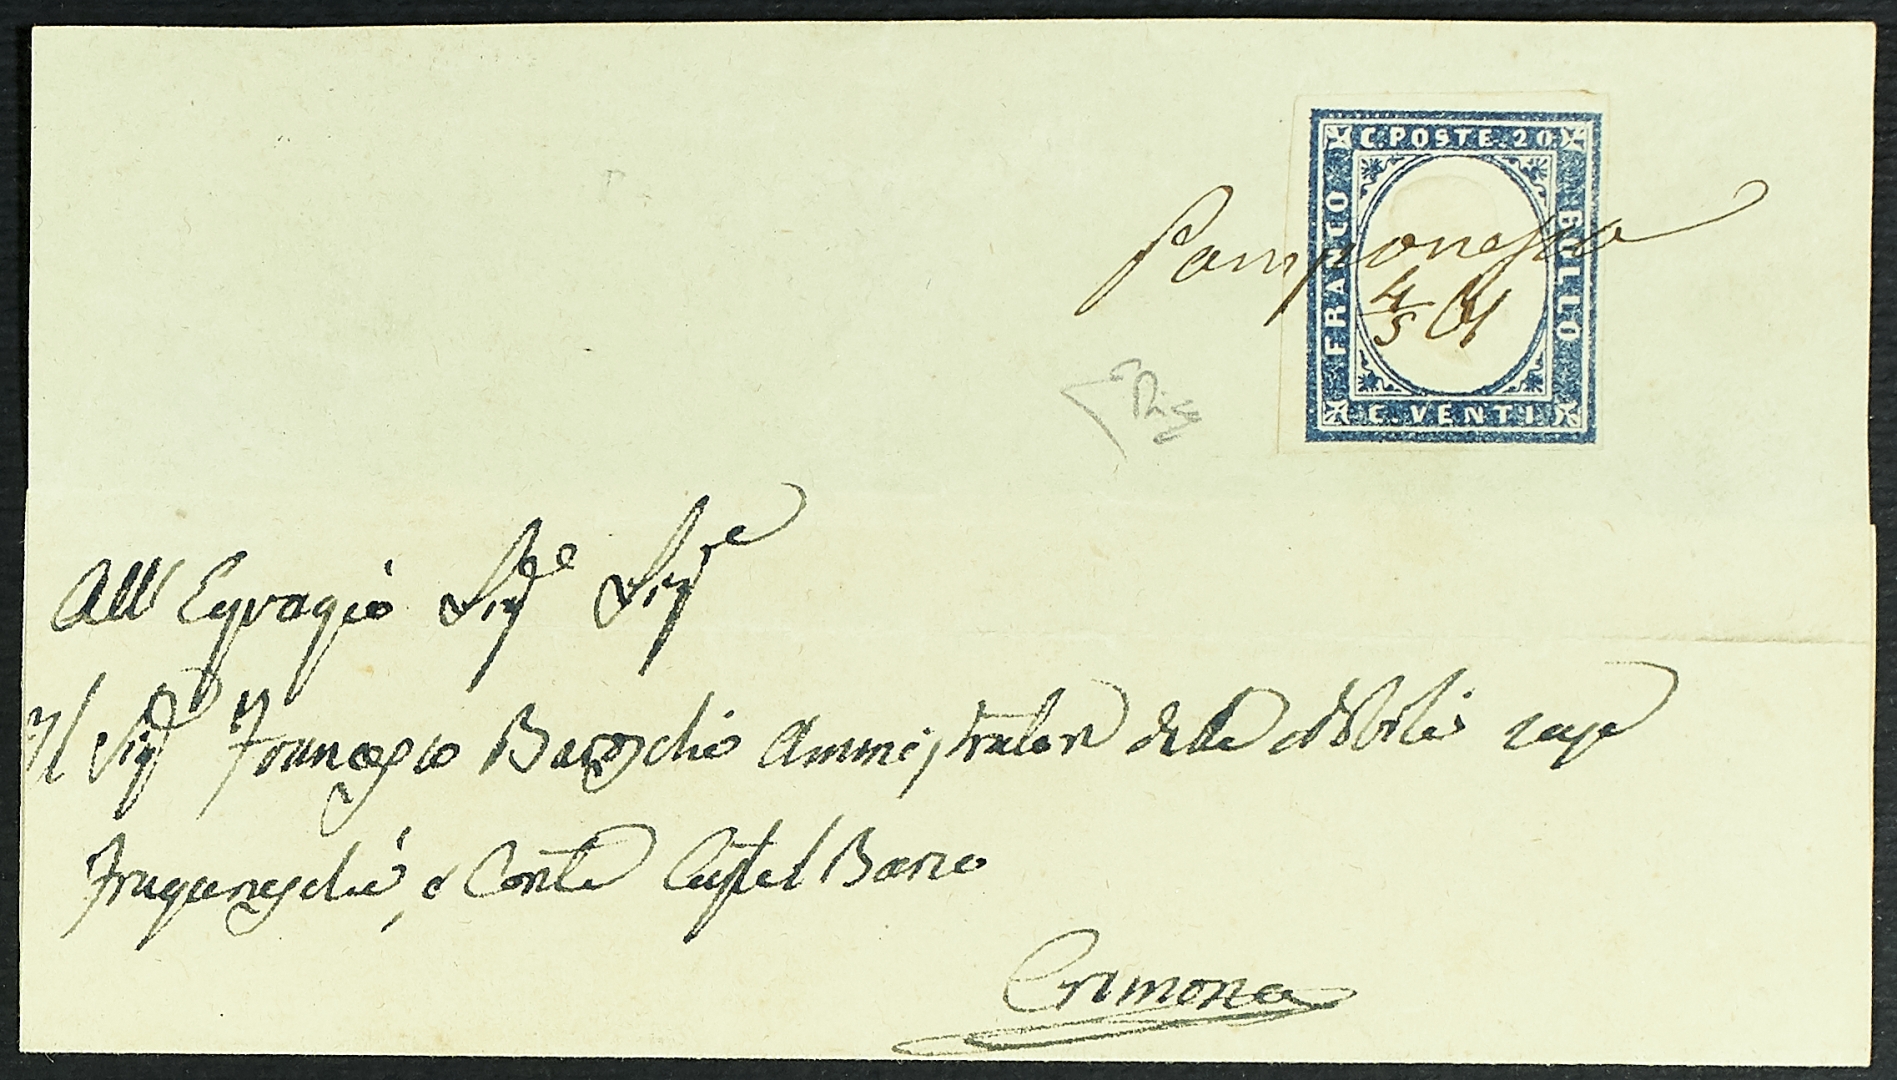 C. POSTE. 20
FRANCO
BOLLO
C. VENTI.
Pomponesco
4/5 61
All' Egregio Sigr Sigre
Il Sigr Francesco Baroschi Amministrator delle Nobili case
Fraganeschi, e Conte Castel Barco
Cremona